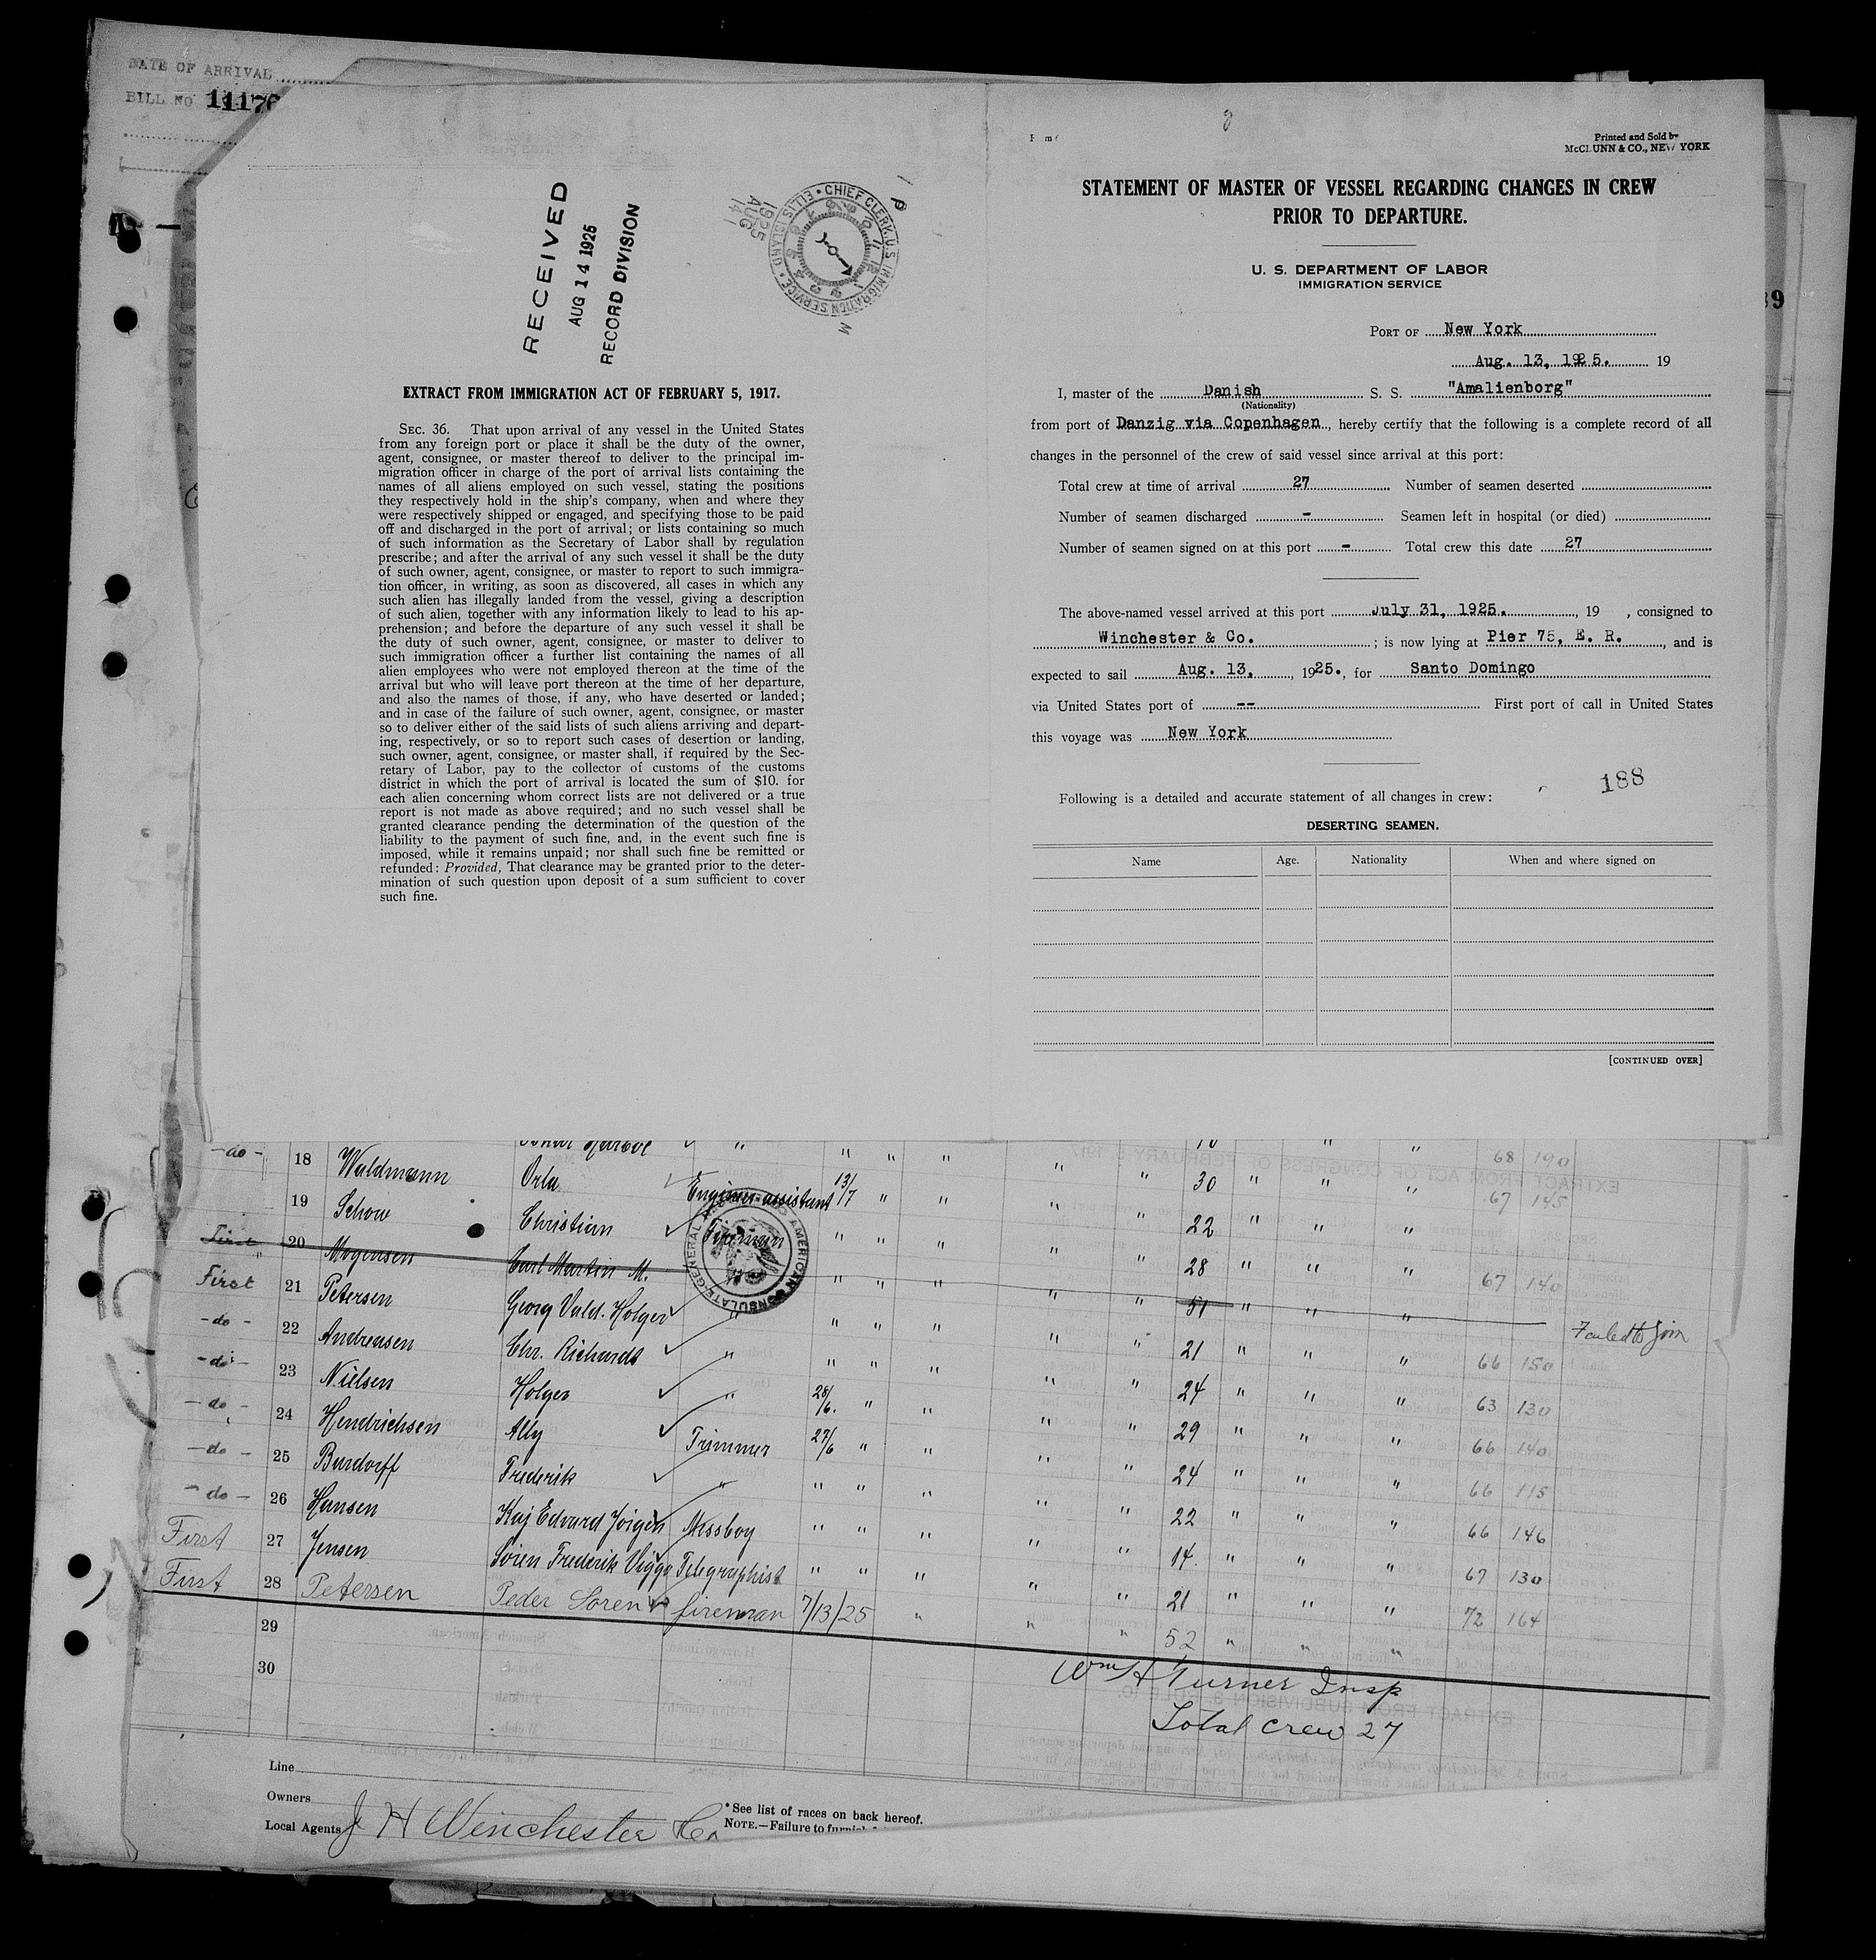 DATE OF ARRIVAL
BILL NO 11176
RECEIVED
AUG 14 1925
RECORD DIVISION
CHIEF CLERK. U.S. IMMIGRATION SERVICE • ELLIS ISLAND •
1925
AUG
14
M
EXTRACT FROM IMMIGRATION ACT OF FEBRUARY 5, 1917.
SEC. 36. That upon arrival of any vessel in the United States
from any foreign port or place it shall be the duty of the owner,
agent, consignee, or master thereof to deliver to the principal im-
migration officer in charge of the port of arrival lists containing the
names of all aliens employed on such vessel, stating the positions
they respectively hold in the ship's company, when and where they
were respectively shipped or engaged, and specifying those to be paid
off and discharged in the port of arrival; or lists containing so much
of such information as the Secretary of Labor shall by regulation
prescribe; and after the arrival of any such vessel it shall be the duty
of such owner, agent, consignee, or master to report to such immigra-
tion officer, in writing, as soon as discovered, all cases in which any
such alien has illegally landed from the vessel, giving a description
of such alien, together with any information likely to lead to his ap-
prehension; and before the departure of any such vessel it shall be
the duty of such owner, agent, consignee, or master to deliver to
such immigration officer a further list containing the names of all
alien employees who were not employed thereon at the time of the
arrival but who will leave port thereon at the time of her departure,
and also the names of those, if any, who have deserted or landed;
and in case of the failure of such owner, agent, consignee, or master
so to deliver either of the said lists of such aliens arriving and depart-
ing, respectively, or so to report such cases of desertion or landing,
such owner, agent, consignee, or master shall, if required by the Sec-
retary of Labor, pay to the collector of customs of the customs
district in which the port of arrival is located the sum of $10. for
each alien concerning whom correct lists are not delivered or a true
report is not made as above required; and no such vessel shall be
granted clearance pending the determination of the question of the
liability to the payment of such fine, and, in the event such fine is
imposed, while it remains unpaid; nor shall such fine be remitted or
refunded: Provided, That clearance may be granted prior to the deter-
mination of such question upon deposit of a sum sufficient to cover
such fine.
Printed and Sold by
McCLUNN & CO., NEW YORK
STATEMENT OF MASTER OF VESSEL REGARDING CHANGES IN CREW
PRIOR TO DEPARTURE.
U. S. DEPARTMENT OF LABOR
IMMIGRATION SERVICE
PORT OF New York
Aug. 13, 1925. 19
I, master of the Danish S. S. "Amalienborg"
(Nationality)
from port of Danzig via Copenhagen, hereby certify that the following is a complete record of all
changes in the personnel of the crew of said vessel since arrival at this port:
Total crew at time of arrival 27 Number of seamen deserted
Number of seamen discharged - Seamen left in hospital (or died)
Number of seamen signed on at this port - Total crew this date 27
The above-named vessel arrived at this port July 31, 1925., 19 , consigned to
Winchester & Co. ; is now lying at Pier 75, E. R., and is
expected to sail Aug. 13, , 1925., for Santo Domingo
via United States port of -- First port of call in United States
this voyage was New York
188
Following is a detailed and accurate statement of all changes in crew:
DESERTING SEAMEN.
Name Age. Nationality When and where signed on
[CONTINUED OVER]
-do- 18 Waldmann Orla " " " " " " 68 190
19 Schow Christian Engineer-assistant 13/7 " " " " 30 " " " 67 145
First 20 Mogensen Carl Martin M. Fireman " " " " " 22 " " "
First 21 Petersen Georg Vald. Holger " " " " " " 28 " " " 67 140
-do- 22 Andreasen Chr. Richardt " " " " " " 51 " " " Failed to join
-do- 23 Nielsen Holger " " " " " " 21 " " " 66 150
-do- 24 Hendrichsen Ally Trimmer 28/6. " " " " 24 " " " 63 130
-do- 25 Burdorff Frederik " 27/6 " " " " 29 " " " 66 140
-do- 26 Hansen Kaj Edvard Jörgen Messboy " " " " " 24 " " " 66 115
First 27 Jensen Sören Frederik Viggo Telegraphist " " " " " 22 " " " 66 146
First 28 Petersen Peder Soren fireman 7/13/25 " " " 14. " " " 67 130
29 21 " " " 72 164
52 " " "
30
Wm H Turner Insp
Total crew 27
AMERICAN CONSULATE GENERAL
Line
Owners
Local Agents J H Winchester Co
*See list of races on back hereof.
NOTE.—Failure to furnish